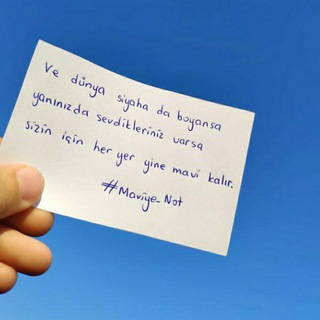 Ve dünya siyaha da boyansa
yanınızda sevdikleriniz varsa
sizin için her yer yine mavi kalır.
#Maviye_Not